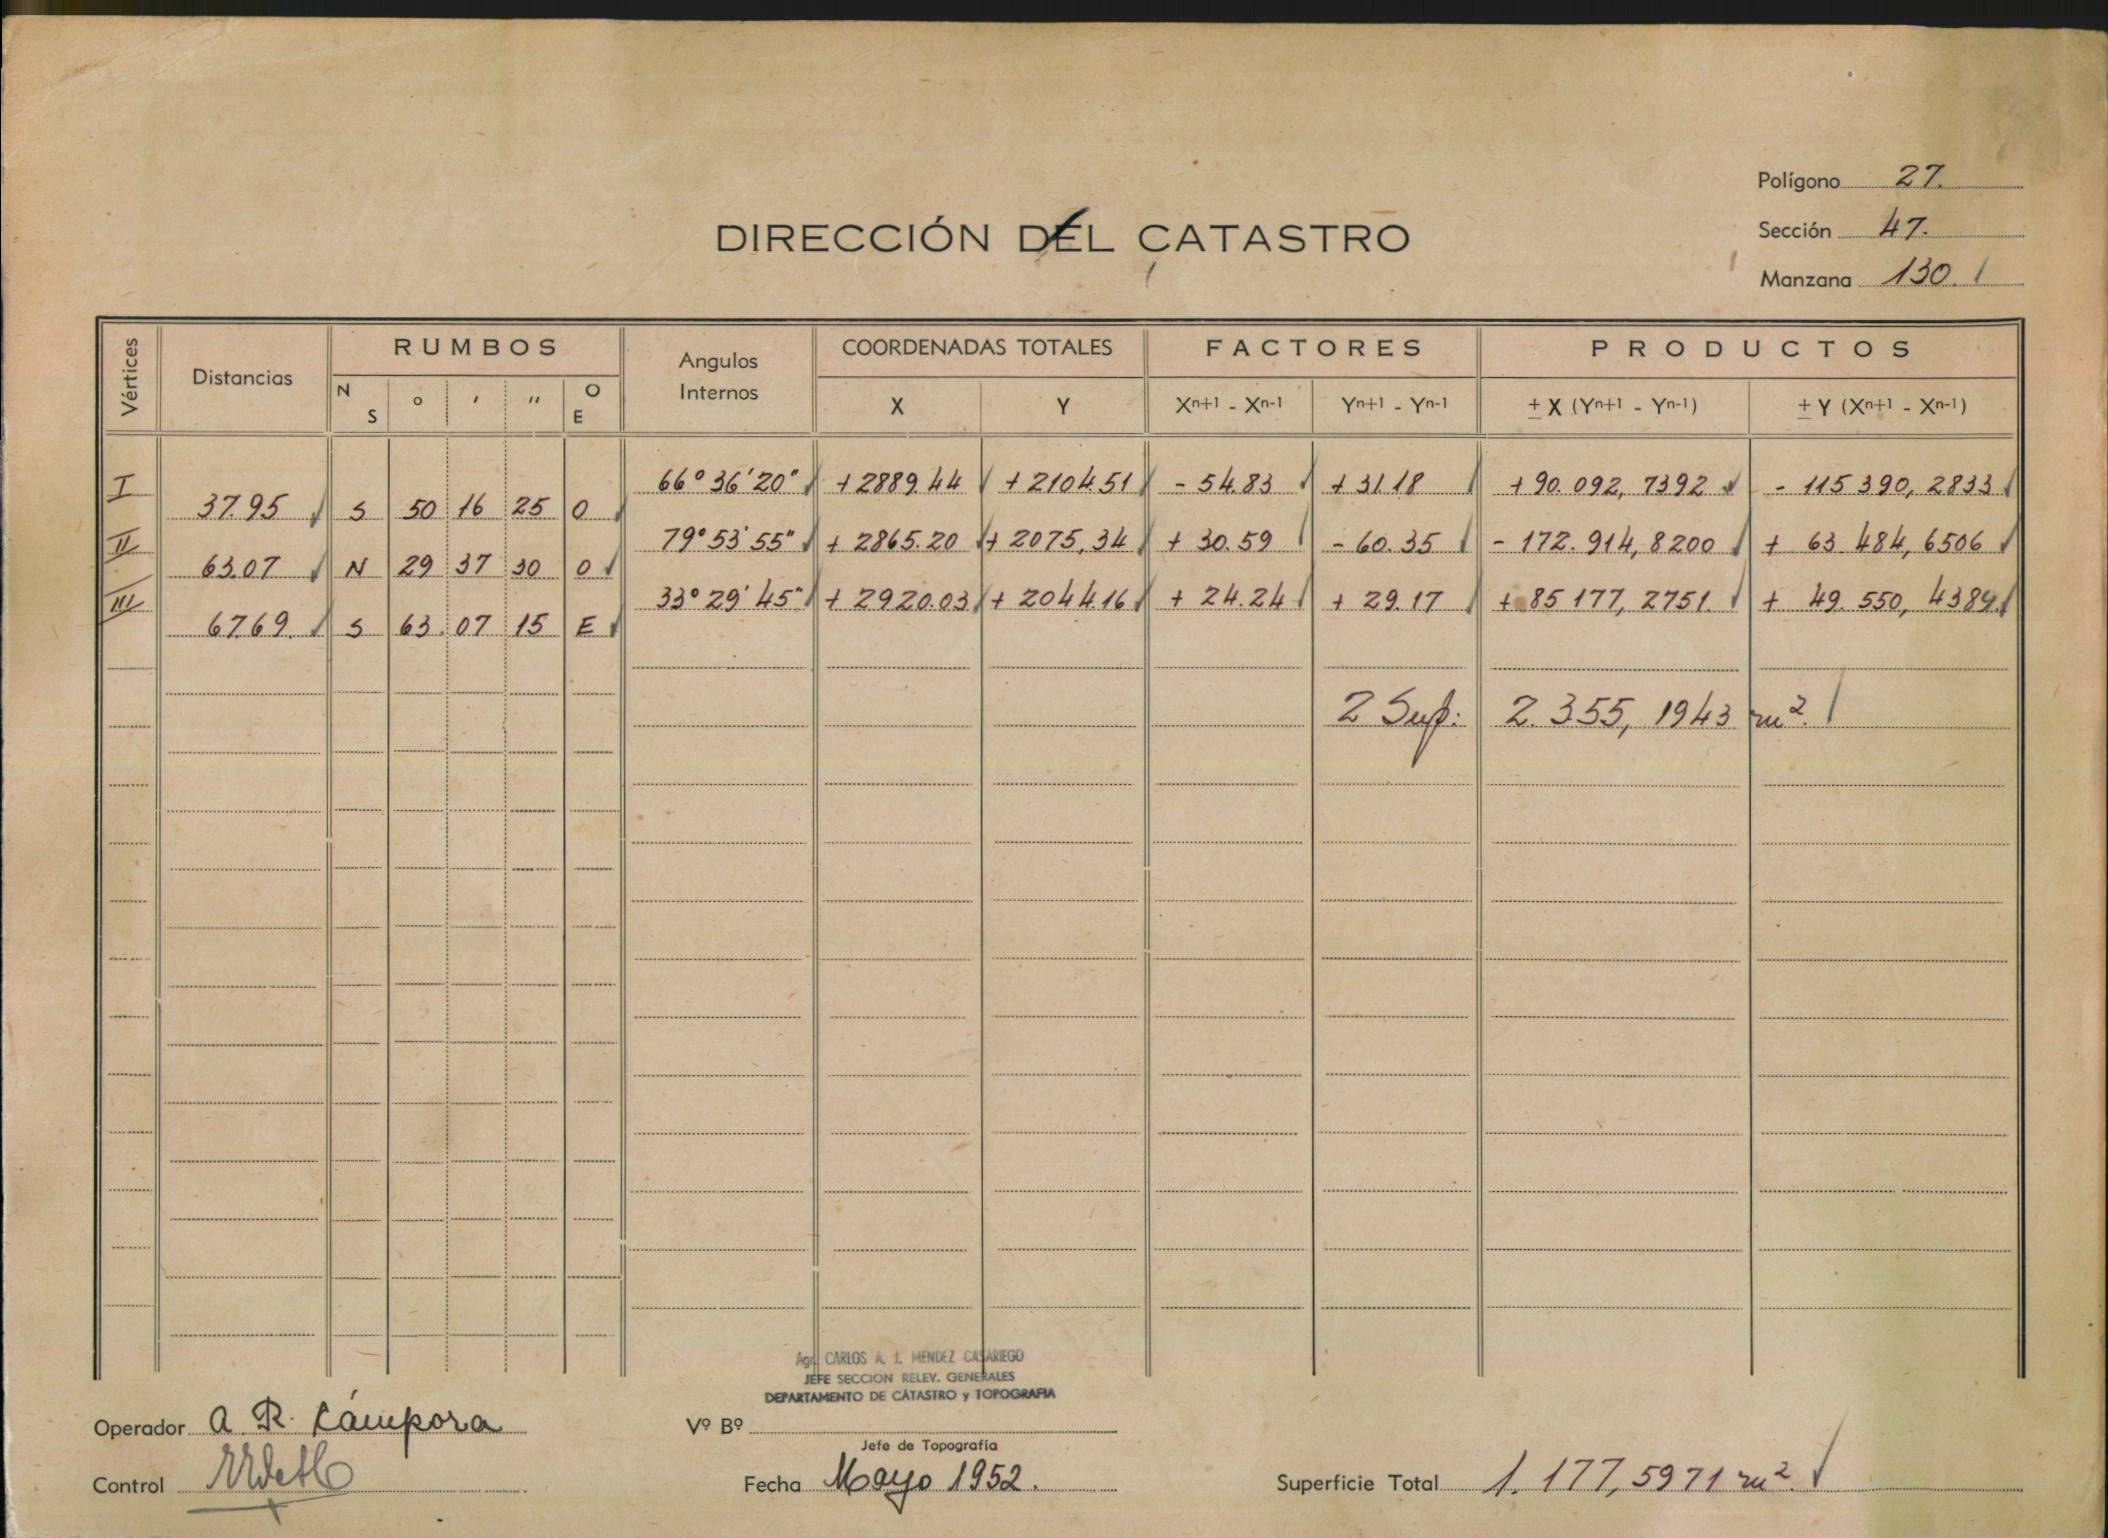 Polígono 27.
DIRECCIÓN DEL CATASTRO
Sección 47.
Manzana 130.
Vértices
Distancias
RUMBOS
N S
° ' "
O E
Angulos Internos
COORDENADAS TOTALES
X Y
FACTORES
Xn+1 - Xn-1 Yn+1 - Yn-1
PRODUCTOS
± X (Yn+1 - Yn-1) ± Y (Xn+1 - Xn-1)
I 66° 36' 20" +2889.44 +2104.51 -54.83 +31.18 +90.092,7392 -115 390,2833
37.95 S 50 16 25 O
II 79° 53' 55" +2865.20 +2075,34 +30.59 -60.35 -172.914,8200 +63 484,6506
63.07 N 29 37 30 O
III 33° 29' 45" +2920.03 +2044.16 +24.24 +29.17 +85 177,2751. +49.550,4384.
67.69. S 63. 07 15 E
2 Sup: 2.355,1943 m².
Agr. CARLOS A. J. MENDEZ CASARIEGO
JEFE SECCION RELEV. GENERALES
DEPARTAMENTO DE CATASTRO y TOPOGRAFIA
Operador A. R. Cámpora
Vº Bº
Jefe de Topografía
Control
Fecha Mayo 1952.
Superficie Total 1.177,5971 m².